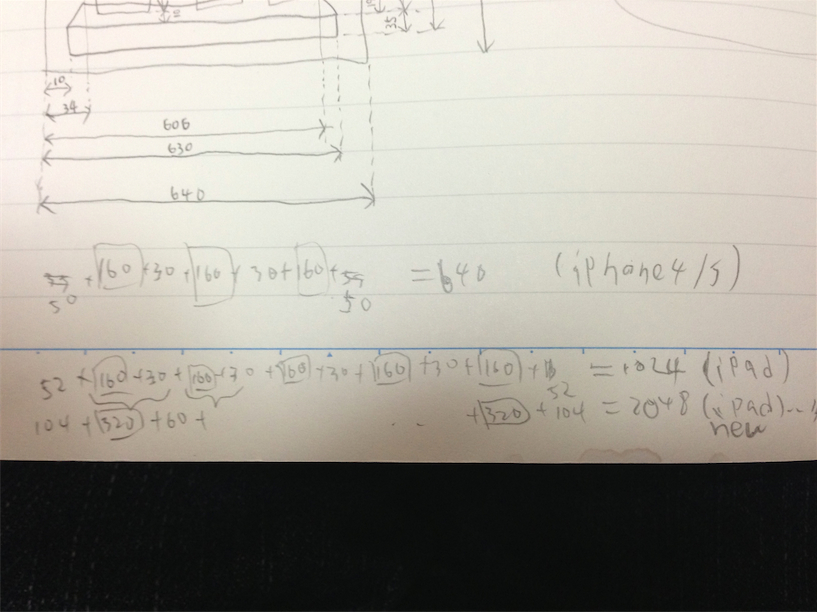 10
34
606
630
640
+ 160 + 30 + 160 + 30 + 160 + = 640 (iPhone4/5)
50 50
52 + 160 + 30 + 160 + 30 + 160 + 30 + 160 + 30 + 160 + = 1024 (iPad)
52
104 + 320 + 60 + .. + 320 + 104 = 2048 (iPad)..
new